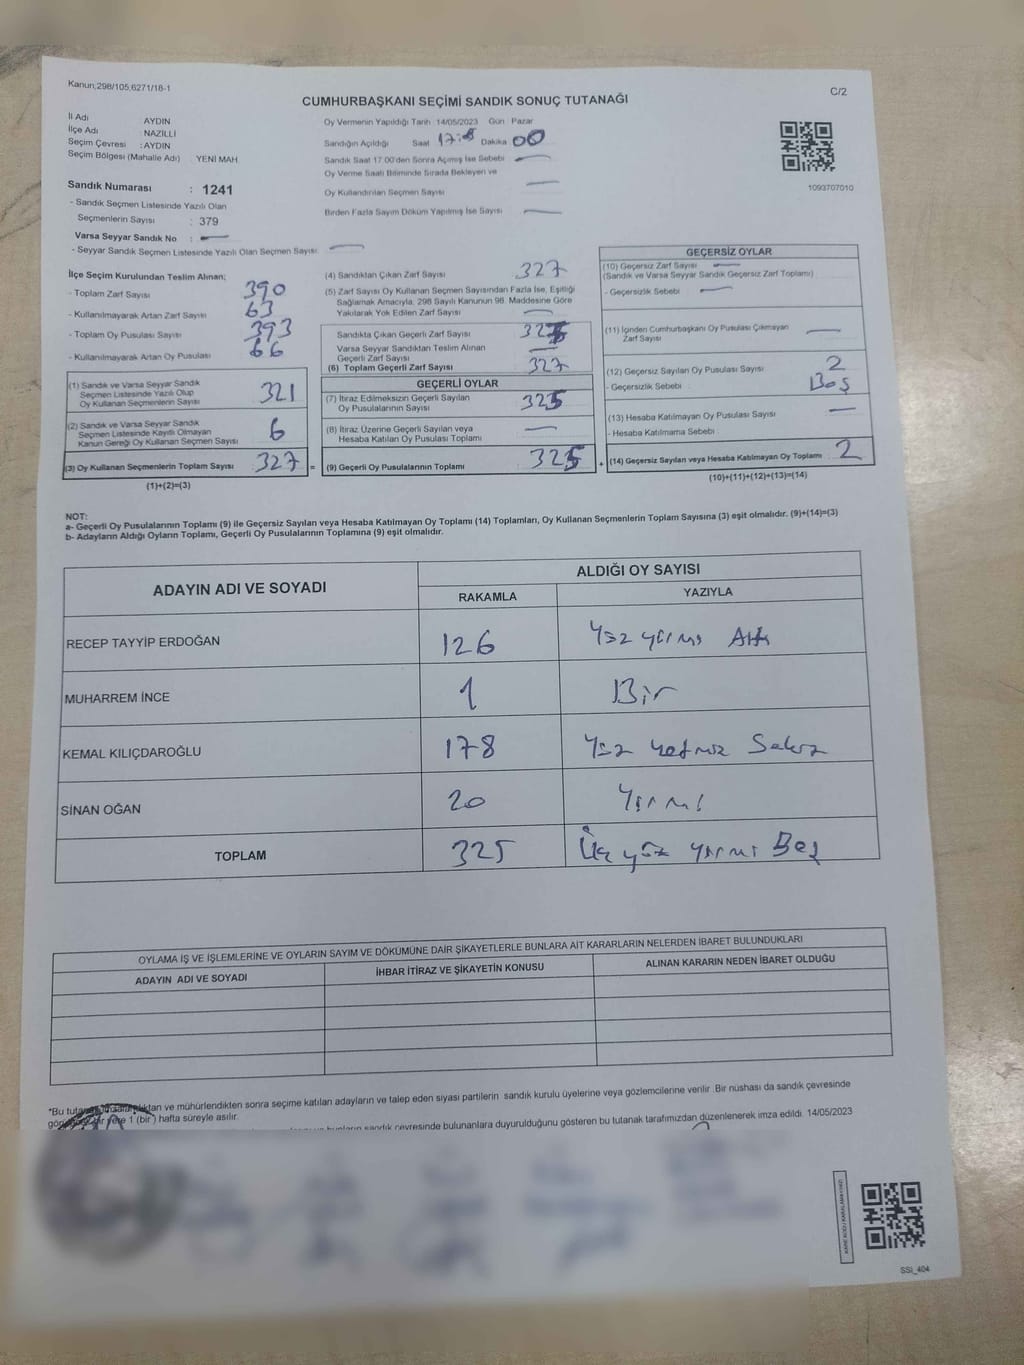 Kanun,298/105,6271/18-1
C/2
CUMHURBAŞKANI SEÇİMİ SANDIK SONUÇ TUTANAĞI
İl Adı AYDIN
İlçe Adı : NAZİLLİ
Seçim Çevresi : AYDIN
Seçim Bölgesi (Mahalle Adı) : YENİ MAH
Sandık Numarası : 1241
- Sandık Seçmen Listesinde Yazılı Olan
Seçmenlerin Sayısı : 379
Varsa Seyyar Sandık No : —
- Seyyar Sandık Seçmen Listesinde Yazılı Olan Seçmen Sayısı: —
Oy Vermenin Yapıldığı Tarih 14/05/2023 Gün : Pazar
Sandığın Açıldığı Saat Dakika 00
Sandık Saat 17:00'den Sonra Açımış İse Sebebi —
Oy Verme Saati Bitiminde Sırada Bekleyen ve
Oy Kullandırılan Seçmen Sayısı —
Birden Fazla Sayım Döküm Yapılmış İse Sayısı —
1093707010
İlçe Seçim Kurulundan Teslim Alınan;
- Toplam Zarf Sayısı 390
- Kullanılmayarak Artan Zarf Sayısı 63
- Toplam Oy Pusulası Sayısı 393
- Kullanılmayarak Artan Oy Pusulası 66
(1) Sandık ve Varsa Seyyar Sandık
Seçmen Listesinde Yazılı Olup
Oy Kullanan Seçmenlerin Sayısı 321
(2) Sandık ve Varsa Seyyar Sandık
Seçmen Listesinde Kayıtlı Olmayan
Kanun Gereği Oy Kullanan Seçmen Sayısı 6
(3) Oy Kullanan Seçmenlerin Toplam Sayısı 327 =
(1)+(2)=(3)
(4) Sandıktan Çıkan Zarf Sayısı 327
(5) Zarf Sayısı Oy Kullanan Seçmen Sayısından Fazla İse, Eşitliği
Sağlamak Amacıyla, 298 Sayılı Kanunun 98. Maddesine Göre
Yakılarak Yok Edilen Zarf Sayısı —
Sandıkta Çıkan Geçerli Zarf Sayısı
Varsa Seyyar Sandıktan Teslim Alınan
Geçerli Zarf Sayısı —
(6) Toplam Geçerli Zarf Sayısı 327
GEÇERLİ OYLAR
(7) İtiraz Edilmeksizin Geçerli Sayılan
Oy Pusulalarının Sayısı 325
(8) İtiraz Üzerine Geçerli Sayılan veya
Hesaba Katılan Oy Pusulası Toplamı —
(9) Geçerli Oy Pusulalarının Toplamı 325 +
GEÇERSİZ OYLAR
(10) Geçersiz Zarf Sayısı —
(Sandık ve Varsa Seyyar Sandık Geçersiz Zarf Toplamı)
- Geçersizlik Sebebi —
(11) İçinden Cumhurbaşkanı Oy Pusulası Çıkmayan
Zarf Sayısı —
(12) Geçersiz Sayılan Oy Pusulası Sayısı 2
- Geçersizlik Sebebi Boş
(13) Hesaba Katılmayan Oy Pusulası Sayısı —
- Hesaba Katılmama Sebebi
(14) Geçersiz Sayılan veya Hesaba Katılmayan Oy Toplamı 2
(10)+(11)+(12)+(13)=(14)
NOT:
a- Geçerli Oy Pusulalarının Toplamı (9) ile Geçersiz Sayılan veya Hesaba Katılmayan Oy Toplamı (14) Toplamları, Oy Kullanan Seçmenlerin Toplam Sayısına (3) eşit olmalıdır. (9)+(14)=(3)
b- Adayların Aldığı Oyların Toplamı, Geçerli Oy Pusulalarının Toplamına (9) eşit olmalıdır.
ADAYIN ADI VE SOYADI ALDIĞI OY SAYISI
RAKAMLA YAZIYLA
RECEP TAYYİP ERDOĞAN 126 Yüz yirmi Altı
MUHARREM İNCE 1 Bir
KEMAL KILIÇDAROĞLU 178 Yüz Yetmiş Sekiz
SİNAN OĞAN 20 Yirmi
TOPLAM 325 Üç yüz yirmi Beş
OYLAMA İŞ VE İŞLEMLERİNE VE OYLARIN SAYIM VE DÖKÜMÜNE DAİR ŞİKAYETLERLE BUNLARA AİT KARARLARIN NELERDEN İBARET BULUNDUKLARI
ADAYIN ADI VE SOYADI İHBAR İTİRAZ VE ŞİKAYETİN KONUSU ALINAN KARARIN NEDEN İBARET OLDUĞU
*Bu ve mühürlendikten sonra seçime katılan adayların ve talep eden siyasi partilerin sandık kurulu üyelerine veya gözlemcilerine verilir .Bir nüshası da sandık çevresinde
bir yere 1 (bir) hafta süreyle asılır.
sandık çevresinde bulunanlara duyurulduğunu gösteren bu tutanak tarafımızdan düzenlenerek imza edildi. 14/05/2023
SSİ_404